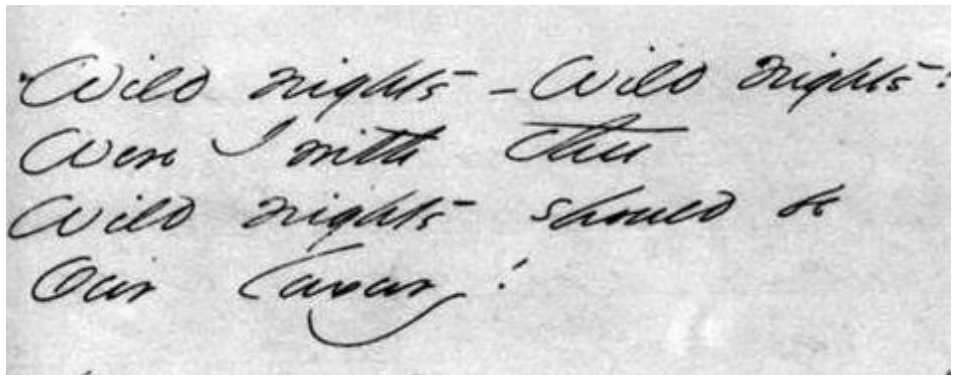 Wild nights - Wild nights!
Were I with thee
Wild nights should be
Our luxury!